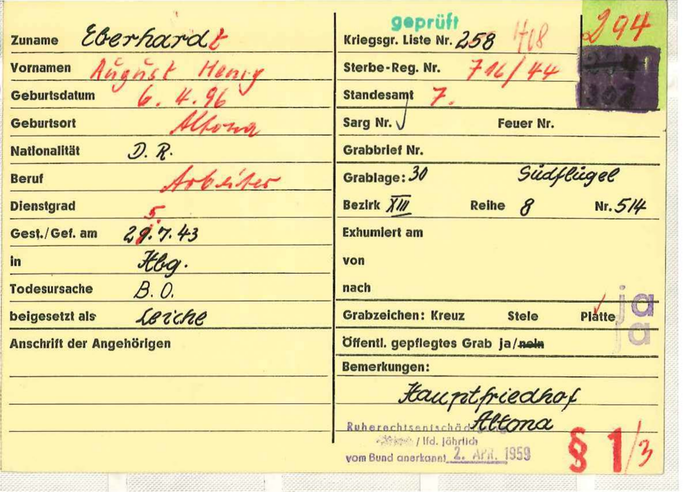 Zuname Eberhardt
Vornamen August Henry
Geburtsdatum 6. 4. 96
Geburtsort Altona
Nationalität D. R.
Beruf Arbeiter
Dienstgrad
Gest./Gef. am 29.7.43
5.
in Hbg.
Todesursache B. O.
beigesetzt als Leiche
Anschrift der Angehörigen
geprüft
Kriegsgr. Liste Nr. 258 468
294
Sterbe-Reg. Nr. 716/44
302
Standesamt 7.
Sarg Nr. Feuer Nr.
Grabbrief Nr.
Grablage: 30 Südflügel
Bezirk XIII Reihe 8 Nr. 514
Exhumiert am
von
nach
Grabzeichen: Kreuz Stele Platte ja
Öffentl. gepflegtes Grab ja/nein ja
Bemerkungen:
Hauptfriedhof
Altona
/ lfd. jährlich
vom Bund anerkannt 2. APR. 1959
§ 1/3